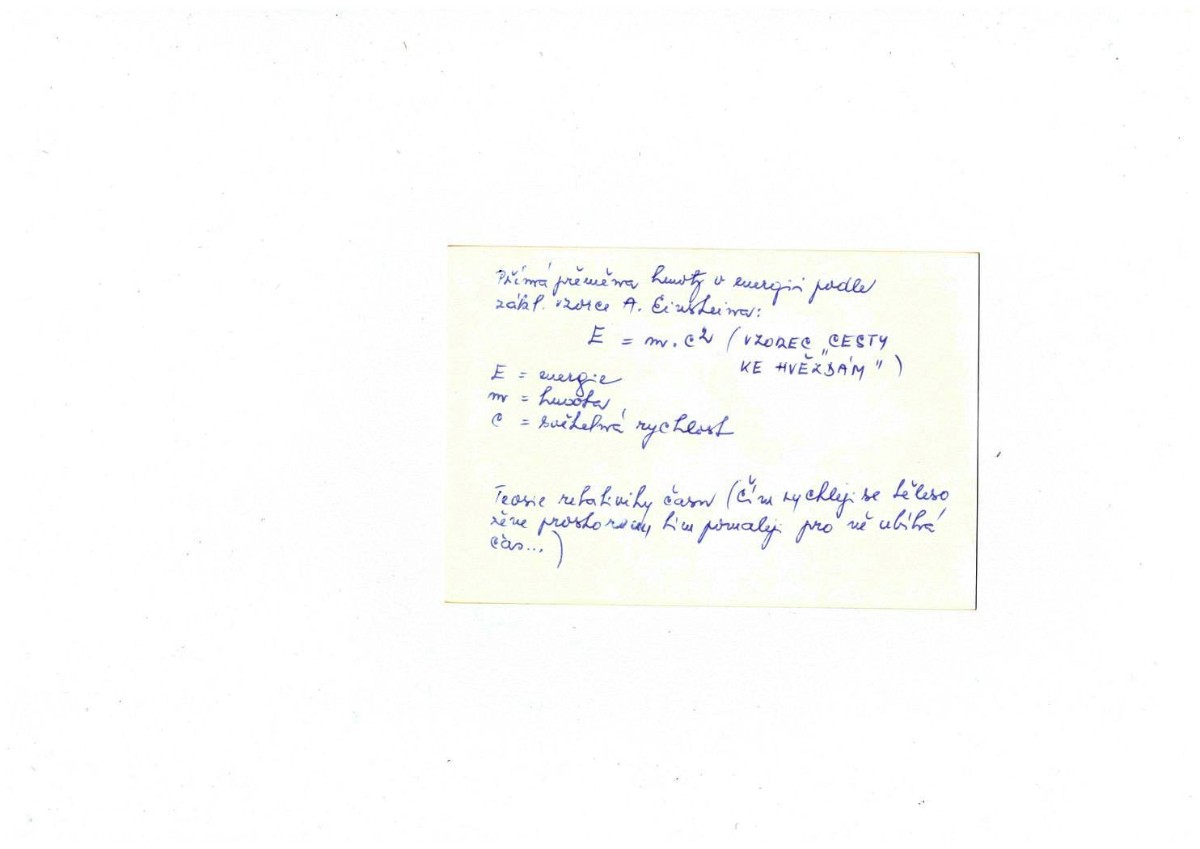 Přímá přeměna hmoty v energii podle
zákl. vzorce A. Einsteina:
E = m.c² (VZOREC „CESTY
KE HVĚZDÁM")
E = energie
m = hmota
c = světelná rychlost
Teorie relativity času (Čím rychleji se těleso
řene prostorem, tím pomaleji pro ně ubíhá
čas...)